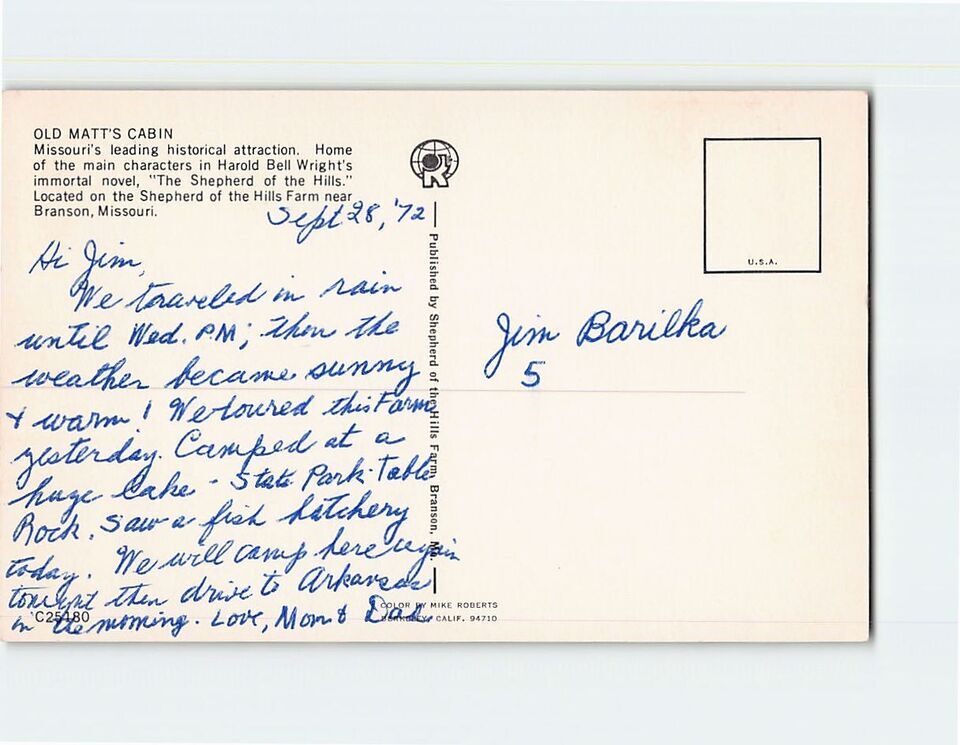 OLD MATT'S CABIN
Missouri's leading historical attraction. Home
of the main characters in Harold Bell Wright's
immortal novel, "The Shepherd of the Hills."
Located on the Shepherd of the Hills Farm near
Branson, Missouri.
Sept 28, '72
Hi Jim,
We traveled in rain
until Wed. P.M; then the
weather became sunny
& warm! We toured this Farm
yesterday. Camped at a
huge Lake - State Park-Table
Rock. Saw a fish hatchery
today. We will camp here again
tonight then drive to Arkansas
in the morning. Love, Mom & Dad.
C25180
Published by Shepherd of the Hills Farm, Branson, Mo.
COLOR BY MIKE ROBERTS
BERKELEY, CALIF. 94710
U.S.A.
Jim Barilka
5